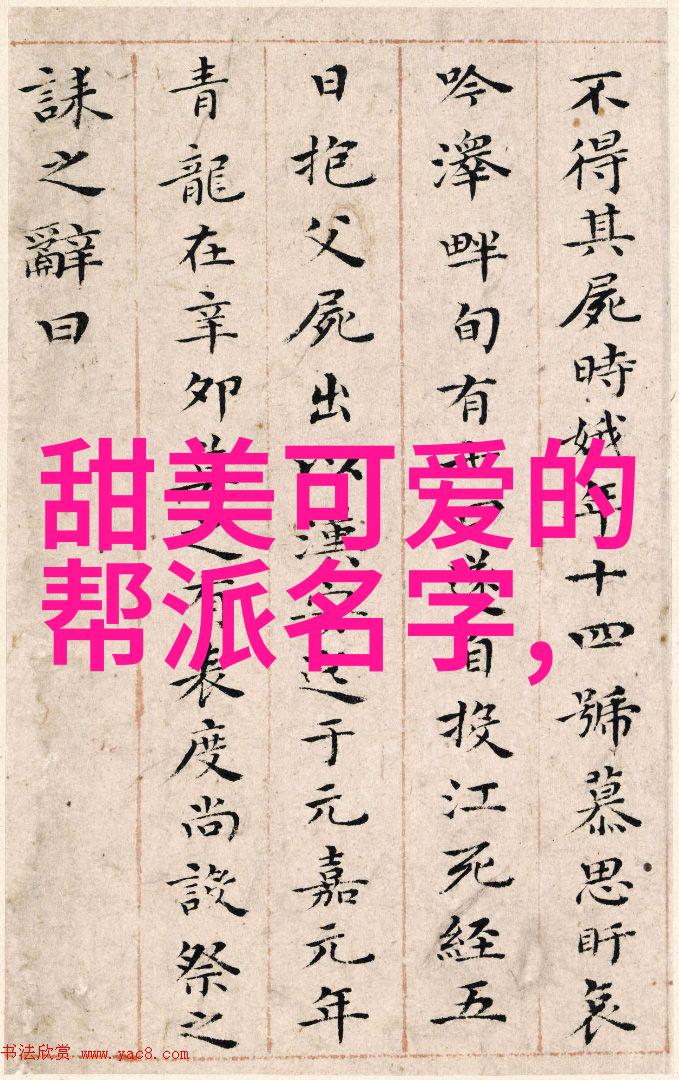 不得其屍時娥年十四號慕思盱哀
吟澤畔旬有自投江死經五
日抱父屍出以漢安迄于元嘉元年
青龍在辛夘之有表度尚設祭之
誄之辭曰
甜美可爱的
帮派名字，
书法欣赏 www.yac8.com